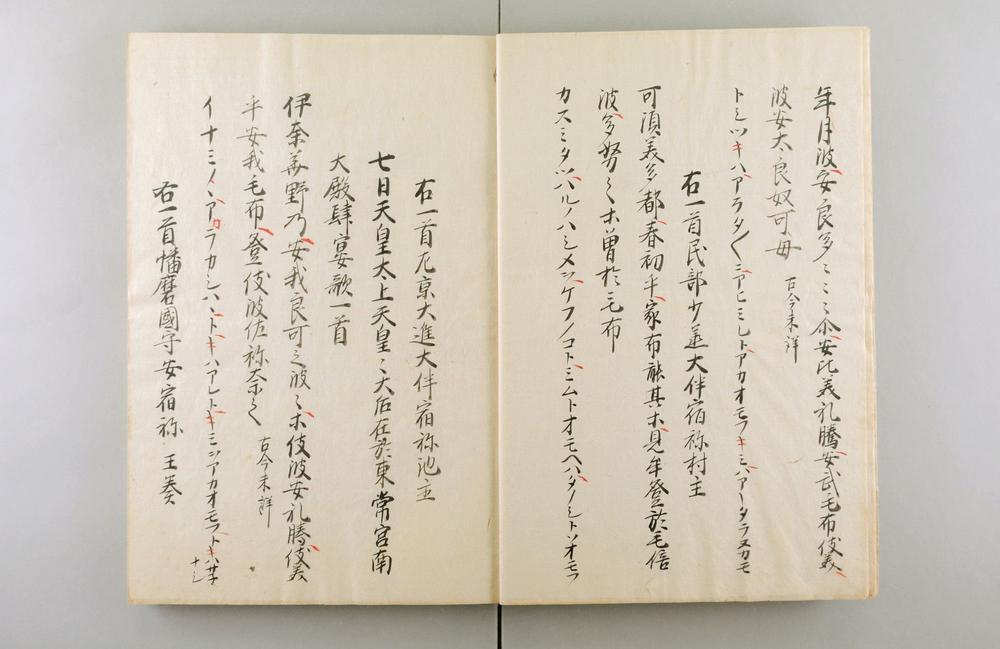 年月波安良多々々尓安比美礼騰安我毛布伎美
波安太良奴可毋 古今未詳
トシツキハアラタ〱ニアヒミレトアカオモフキミハアータラヌカモ
右一首民部少丞大伴宿祢村主
可須美多都春初乎家布能其等見牟登於毛倍
波多努之等曽於毛布
カスミタツハルノハシメヲケフノコトミムトオモヘハタノシトソオモフ
右一首左京大進大伴宿祢池主
七日天皇太上天皇々大后在於東常宮南
大殿肆宴歌一首
伊奈美野乃安我良可之波々等伎波安礼騰伎美
乎安我毛布登伎波佐祢奈之
古今未詳
イナミノヽアカラカシハヽトキハアレトキミヲアカオモフトキハサネナシ
右一首幡磨國守安宿祢王奏